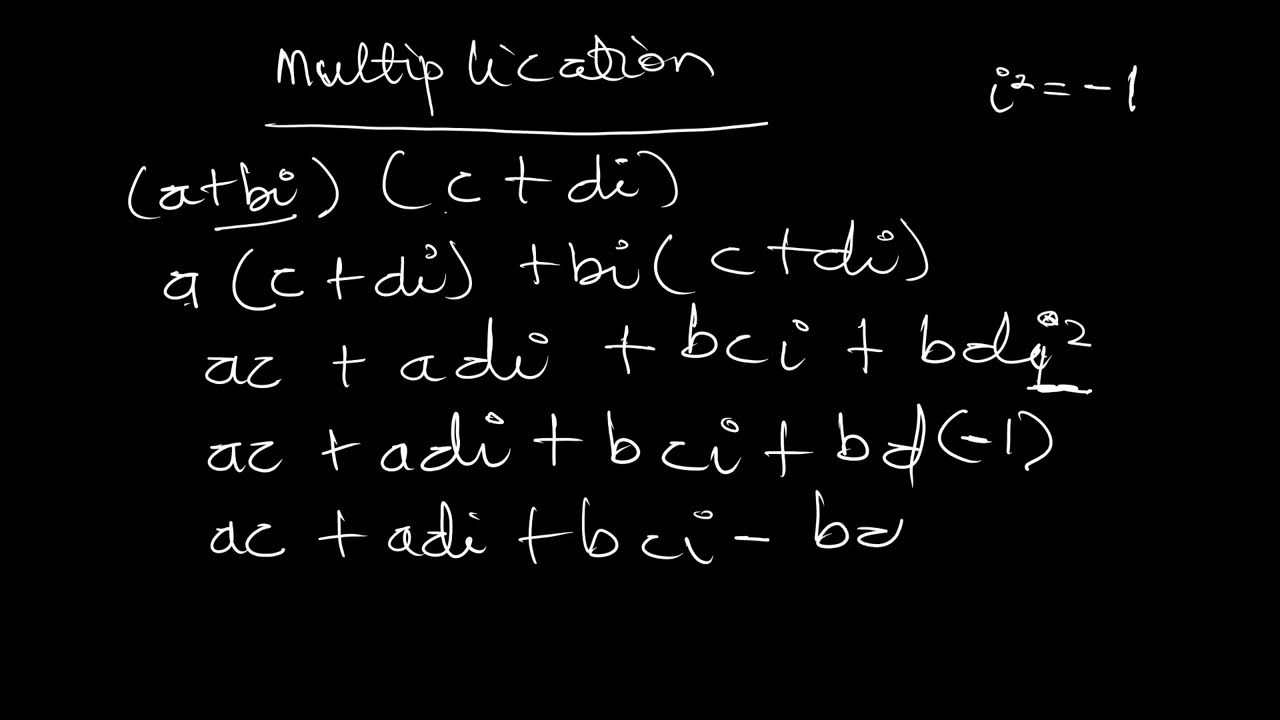 Multiplication
i² = -1
(a+bi) (c + di)
a (c + di) + bi (c + di)
ac + adi + bci + bdi²
ac + adi + bci + bd(-1)
ac + adi + bci -